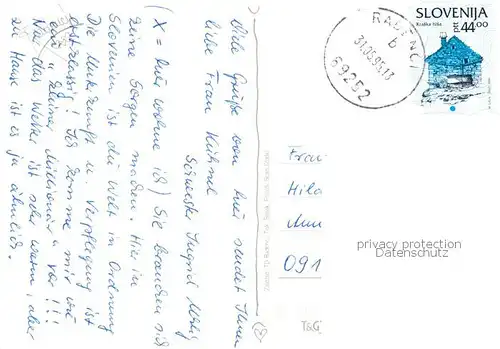 Viele Grüße von hier sendet Ihnen
liebe Frau Kühnel
Schwester Ingrid
(X = hier wohne ich) Sie brauchen sich
keine Sorgen machen. Hier in
Slovenien ist die Welt in Ordnung
Die Unterkunft u. Verpflegung ist
erstklassig! Ich komme mir wie
ein "kleiner Millionär" vor!!!
Nur das Wetter ist sehr warm, aber
zu Hause ist es ja ähnlich.
RADENCI
b
31.05.95.13
69252
SLOVENIJA
Kraška hiša
PTT 44.00
Frau
091
privacy protection
Datenschutz